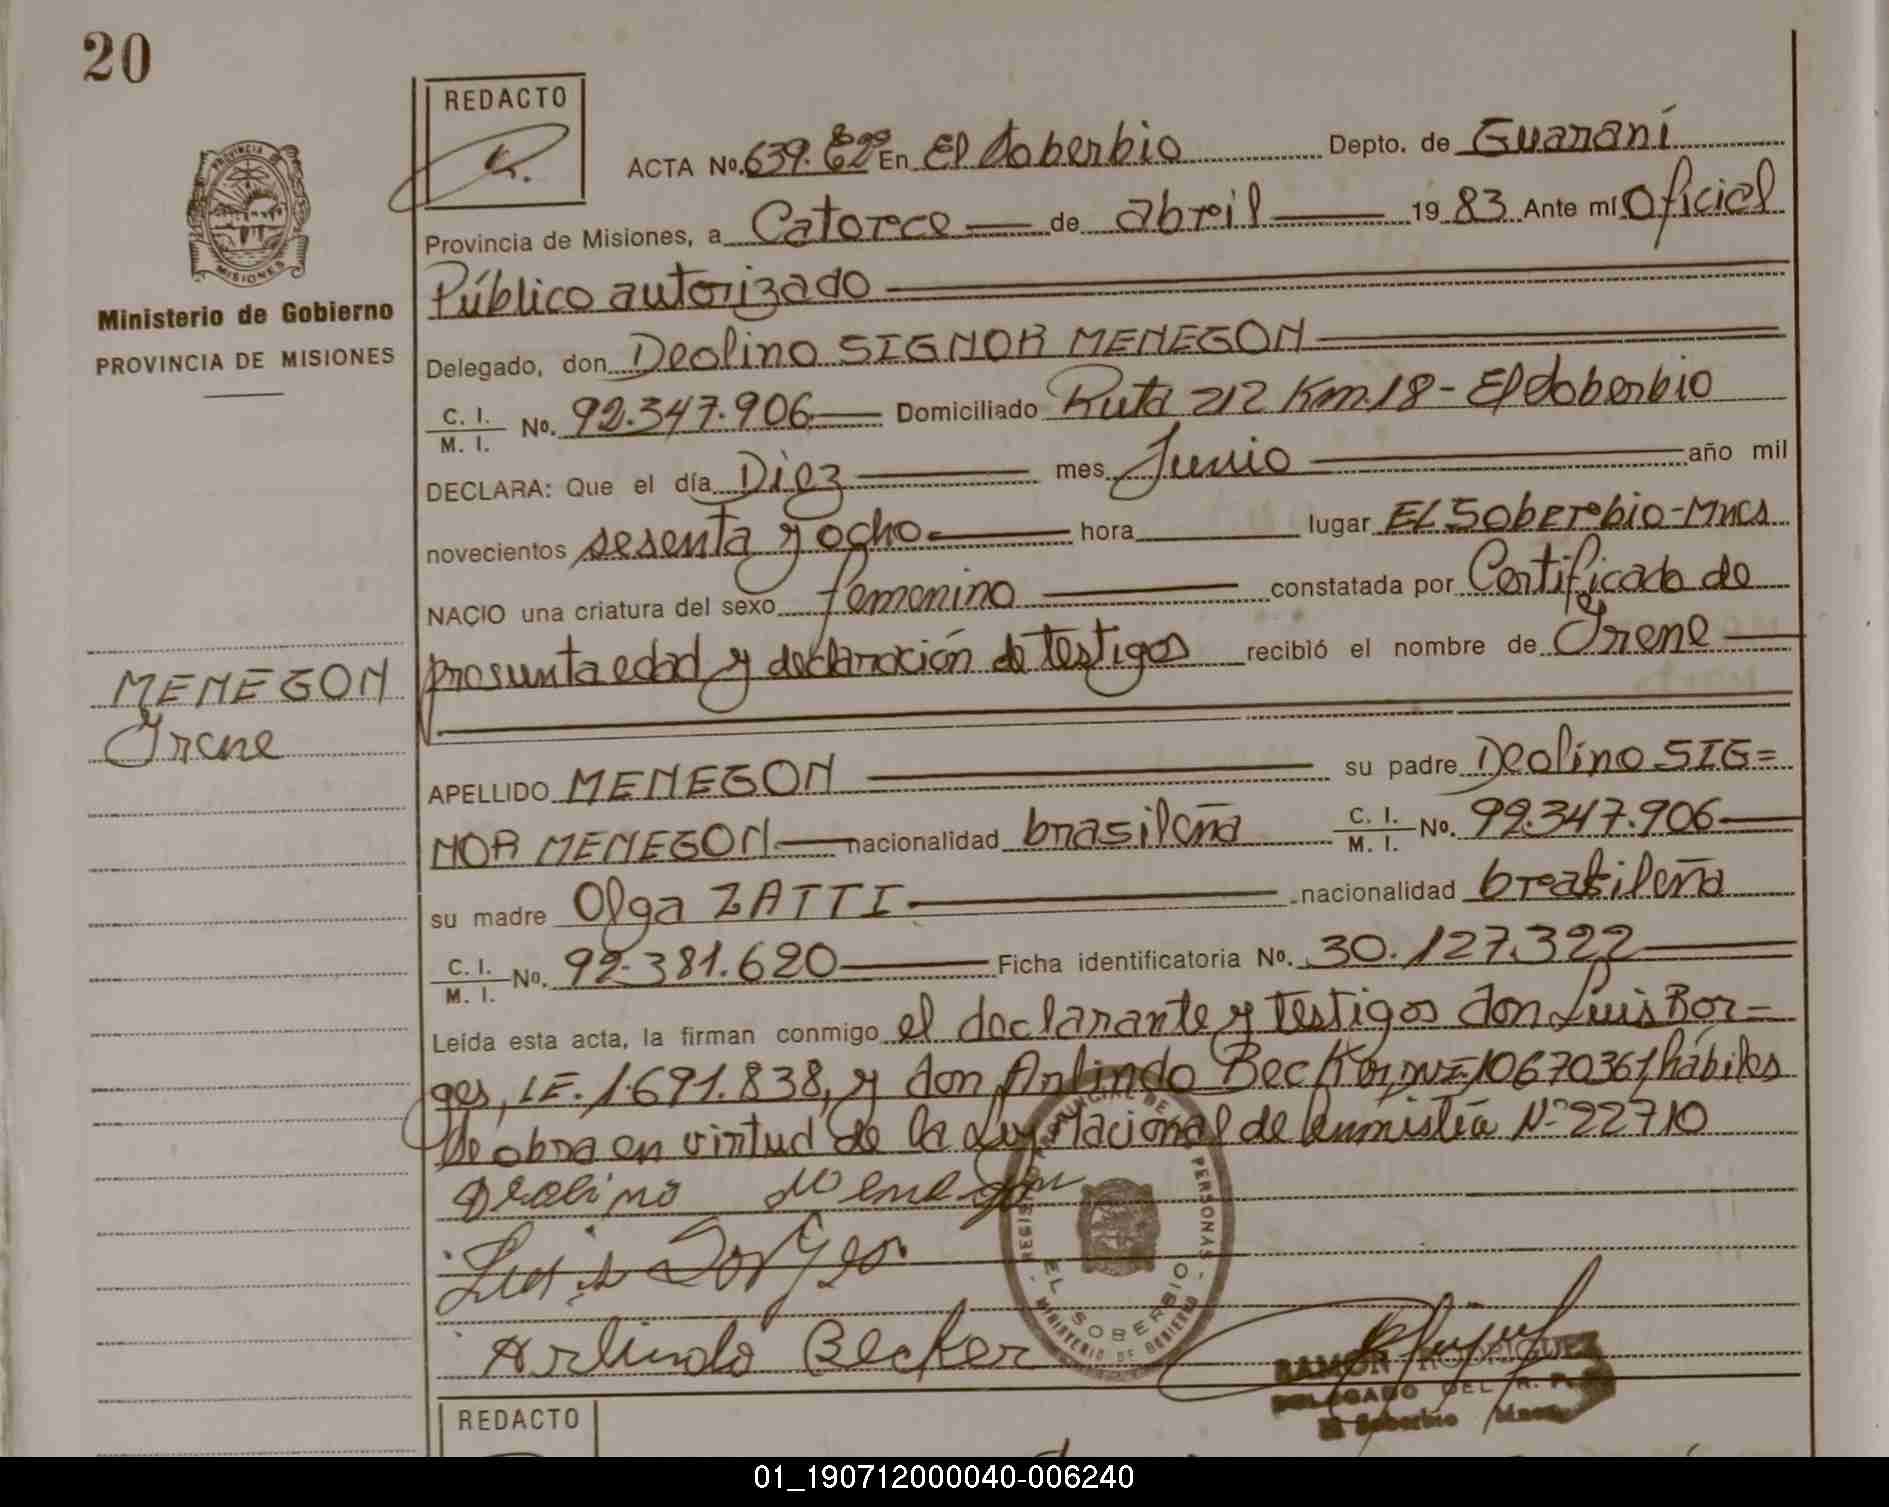 20
REDACTO
ACTA No. 639. En El Soberbio Depto. de Guaraní
PROVINCIA
MISIONES
Provincia de Misiones, a Catorce de abril 19 83 Ante mí Oficial
Público autorizado
Ministerio de Gobierno
PROVINCIA DE MISIONES
Delegado, don Deolino SIGNOR MENEGON
C. I.
M. I. No. 92.347.906 Domiciliado Ruta 212 Km. 18 - El Soberbio
DECLARA: Que el día Diez mes Junio año mil
novecientos sesenta y ocho hora lugar EL Soberbio - Mnes
NACIO una criatura del sexo femenino constatada por Certificado de
presunta edad y declaración de testigos recibió el nombre de Irene
MENEGON
Irene
APELLIDO MENEGON su padre Deolino SIG=
NOR MENEGON nacionalidad brasileña C. I.
M. I. No. 92.347.906
su madre Olga ZATTI nacionalidad brasileña
C. I.
M. I. No. 92.381.620 Ficha identificatoria No. 30.127.322
Leída esta acta, la firman conmigo el declarante y testigos don Luis Bor=
ges, LE. 1.691.838, y don Arlindo Becker, DNI 10670361, hábiles
de obra en virtud de la Ley Nacional de Amnistía Nº 22710
Deolino Menegon
Luis Borges
Arlindo Becker
REGISTRO PROVINCIAL DE LAS PERSONAS
EL SOBERBIO
MINISTERIO DE GOBIERNO
RAMON RODRIGUEZ
DELEGADO DEL R. P.
El Soberbio Mnes.
REDACTO
01_190712000040-006240